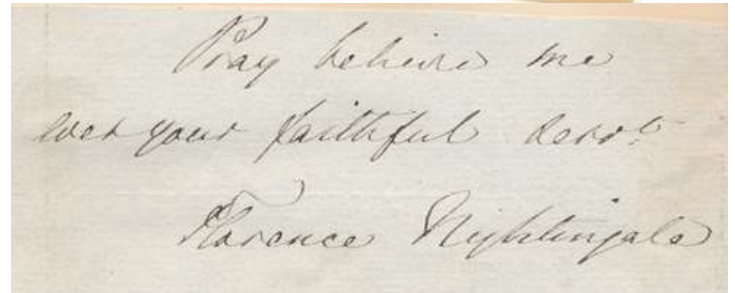 Pray believe me
ever your faithful servt.
Florence Nightingale